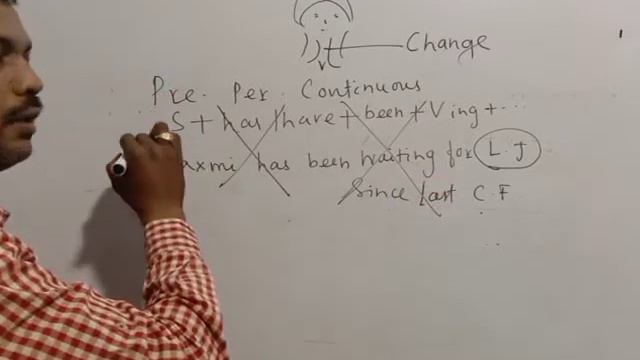 Change
Pre. Per. Continuous
S + has / have + been + Ving + ...
axmi has been waiting for L. J
Since last C. F